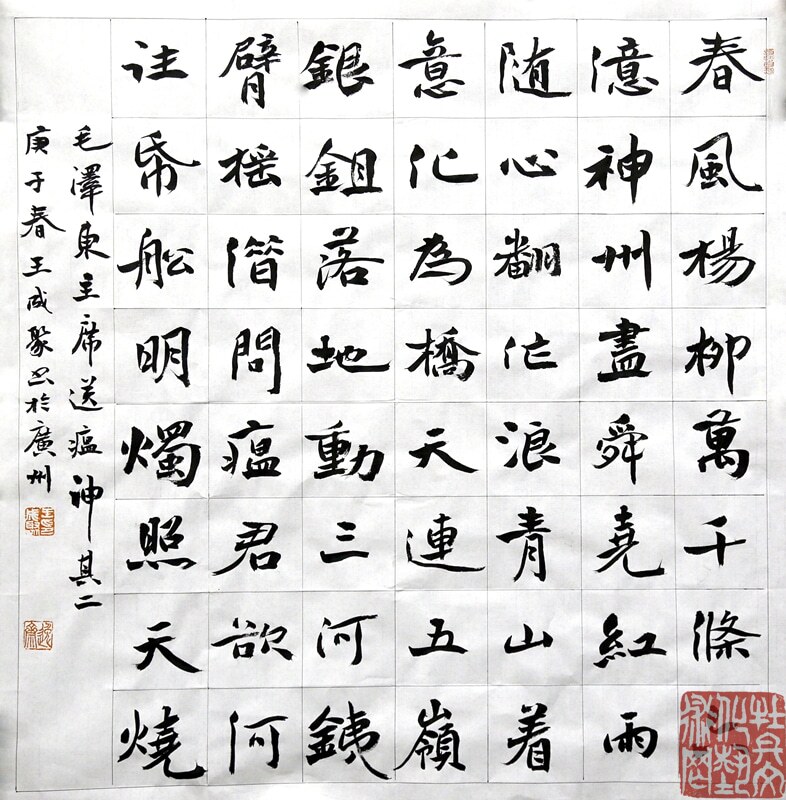 春風楊柳萬千條
億神州盡舜堯紅雨
随心翻作浪青山着
意化為橋天連五嶺
銀鉏落地動三河銕
臂摇借問瘟君欲何
往帋船明燭照天燒
毛澤東主席送瘟神其二
庚子春王成聚书於廣州